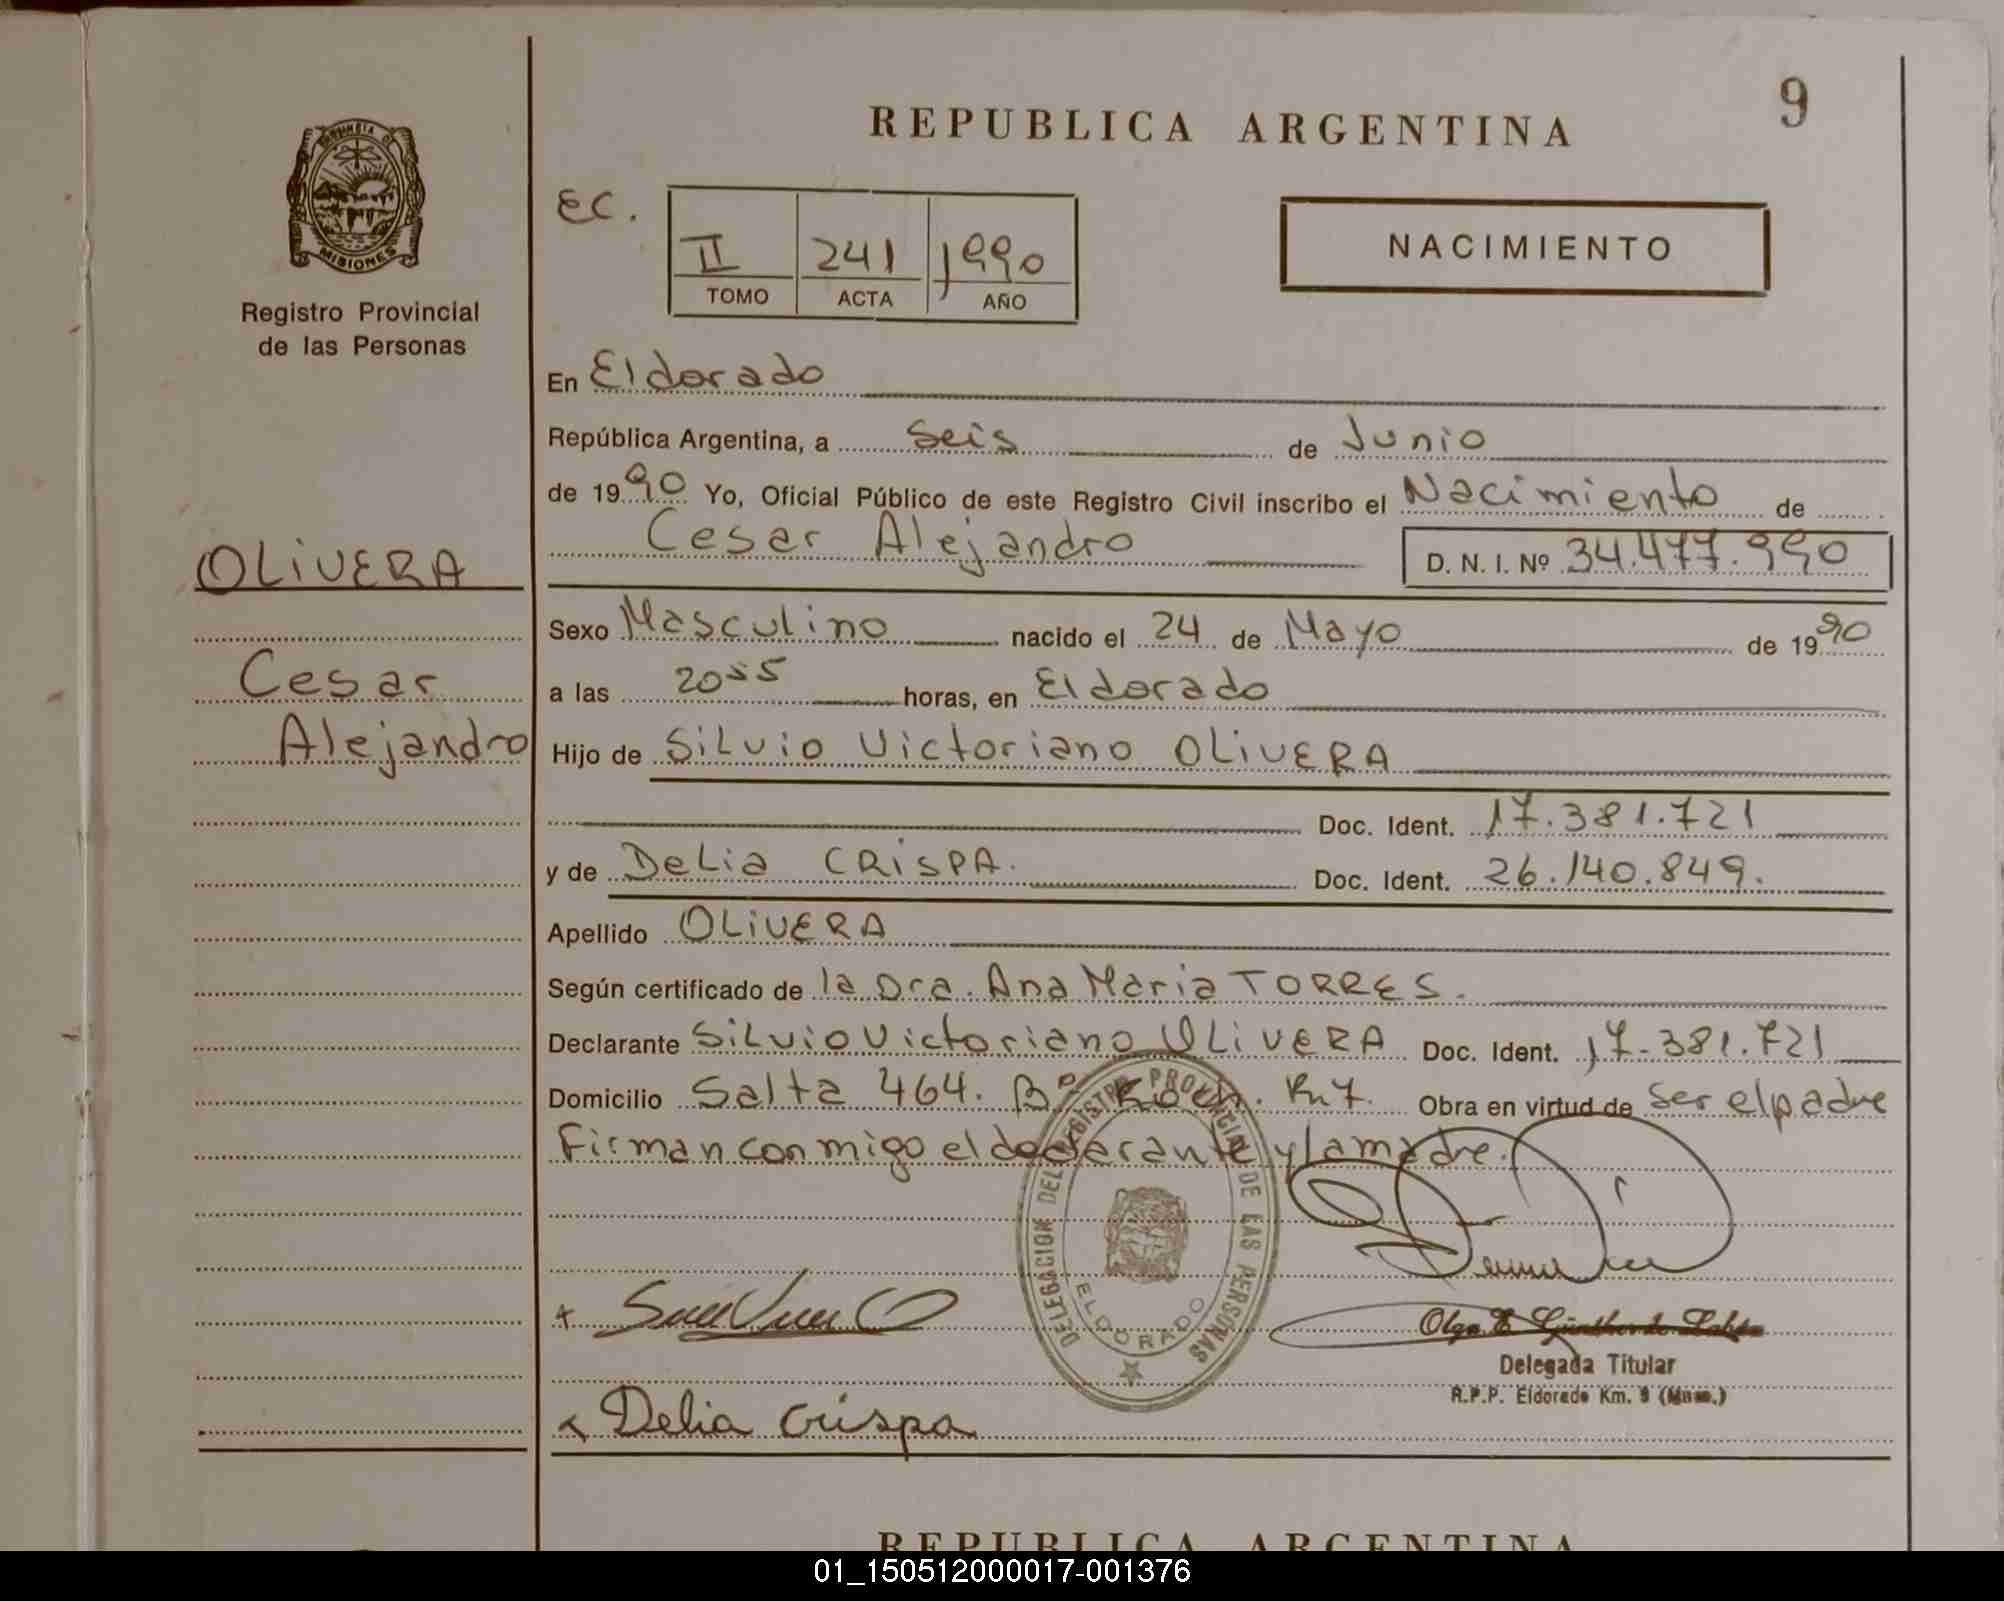 9
REPUBLICA ARGENTINA
PROVINCIA DE
MISIONES
Registro Provincial
de las Personas
EC.
II 241 1990
TOMO ACTA AÑO
NACIMIENTO
En Eldorado
República Argentina, a seis de Junio
de 1990 Yo, Oficial Público de este Registro Civil inscribo el Nacimiento de
Cesar Alejandro D. N. I. Nº 34.477.990
OLIVERA
Cesar
Alejandro
Sexo Masculino nacido el 24 de Mayo de 1990
a las 2055 horas, en Eldorado
Hijo de Silvio Victoriano OLIVERA
Doc. Ident. 17.381.721
y de Delia CRISPA. Doc. Ident. 26.140.849.
Apellido OLIVERA
Según certificado de la Dra. Ana Maria TORRES.
Declarante Silvio Victoriano OLIVERA Doc. Ident. 17.381.721
Domicilio Salta 464. Bº Obra en virtud de ser el padre
Firman conmigo el declarante y la madre.
DELEGACION DEL REGISTRO PROVINCIAL DE LAS PERSONAS
ELDORADO
Olga E.
Delegada Titular
R.P.P. Eldorado Km. 9 (Mnes.)
x Delia Crispa
REPUBLICA ARGENTINA
01_150512000017-001376